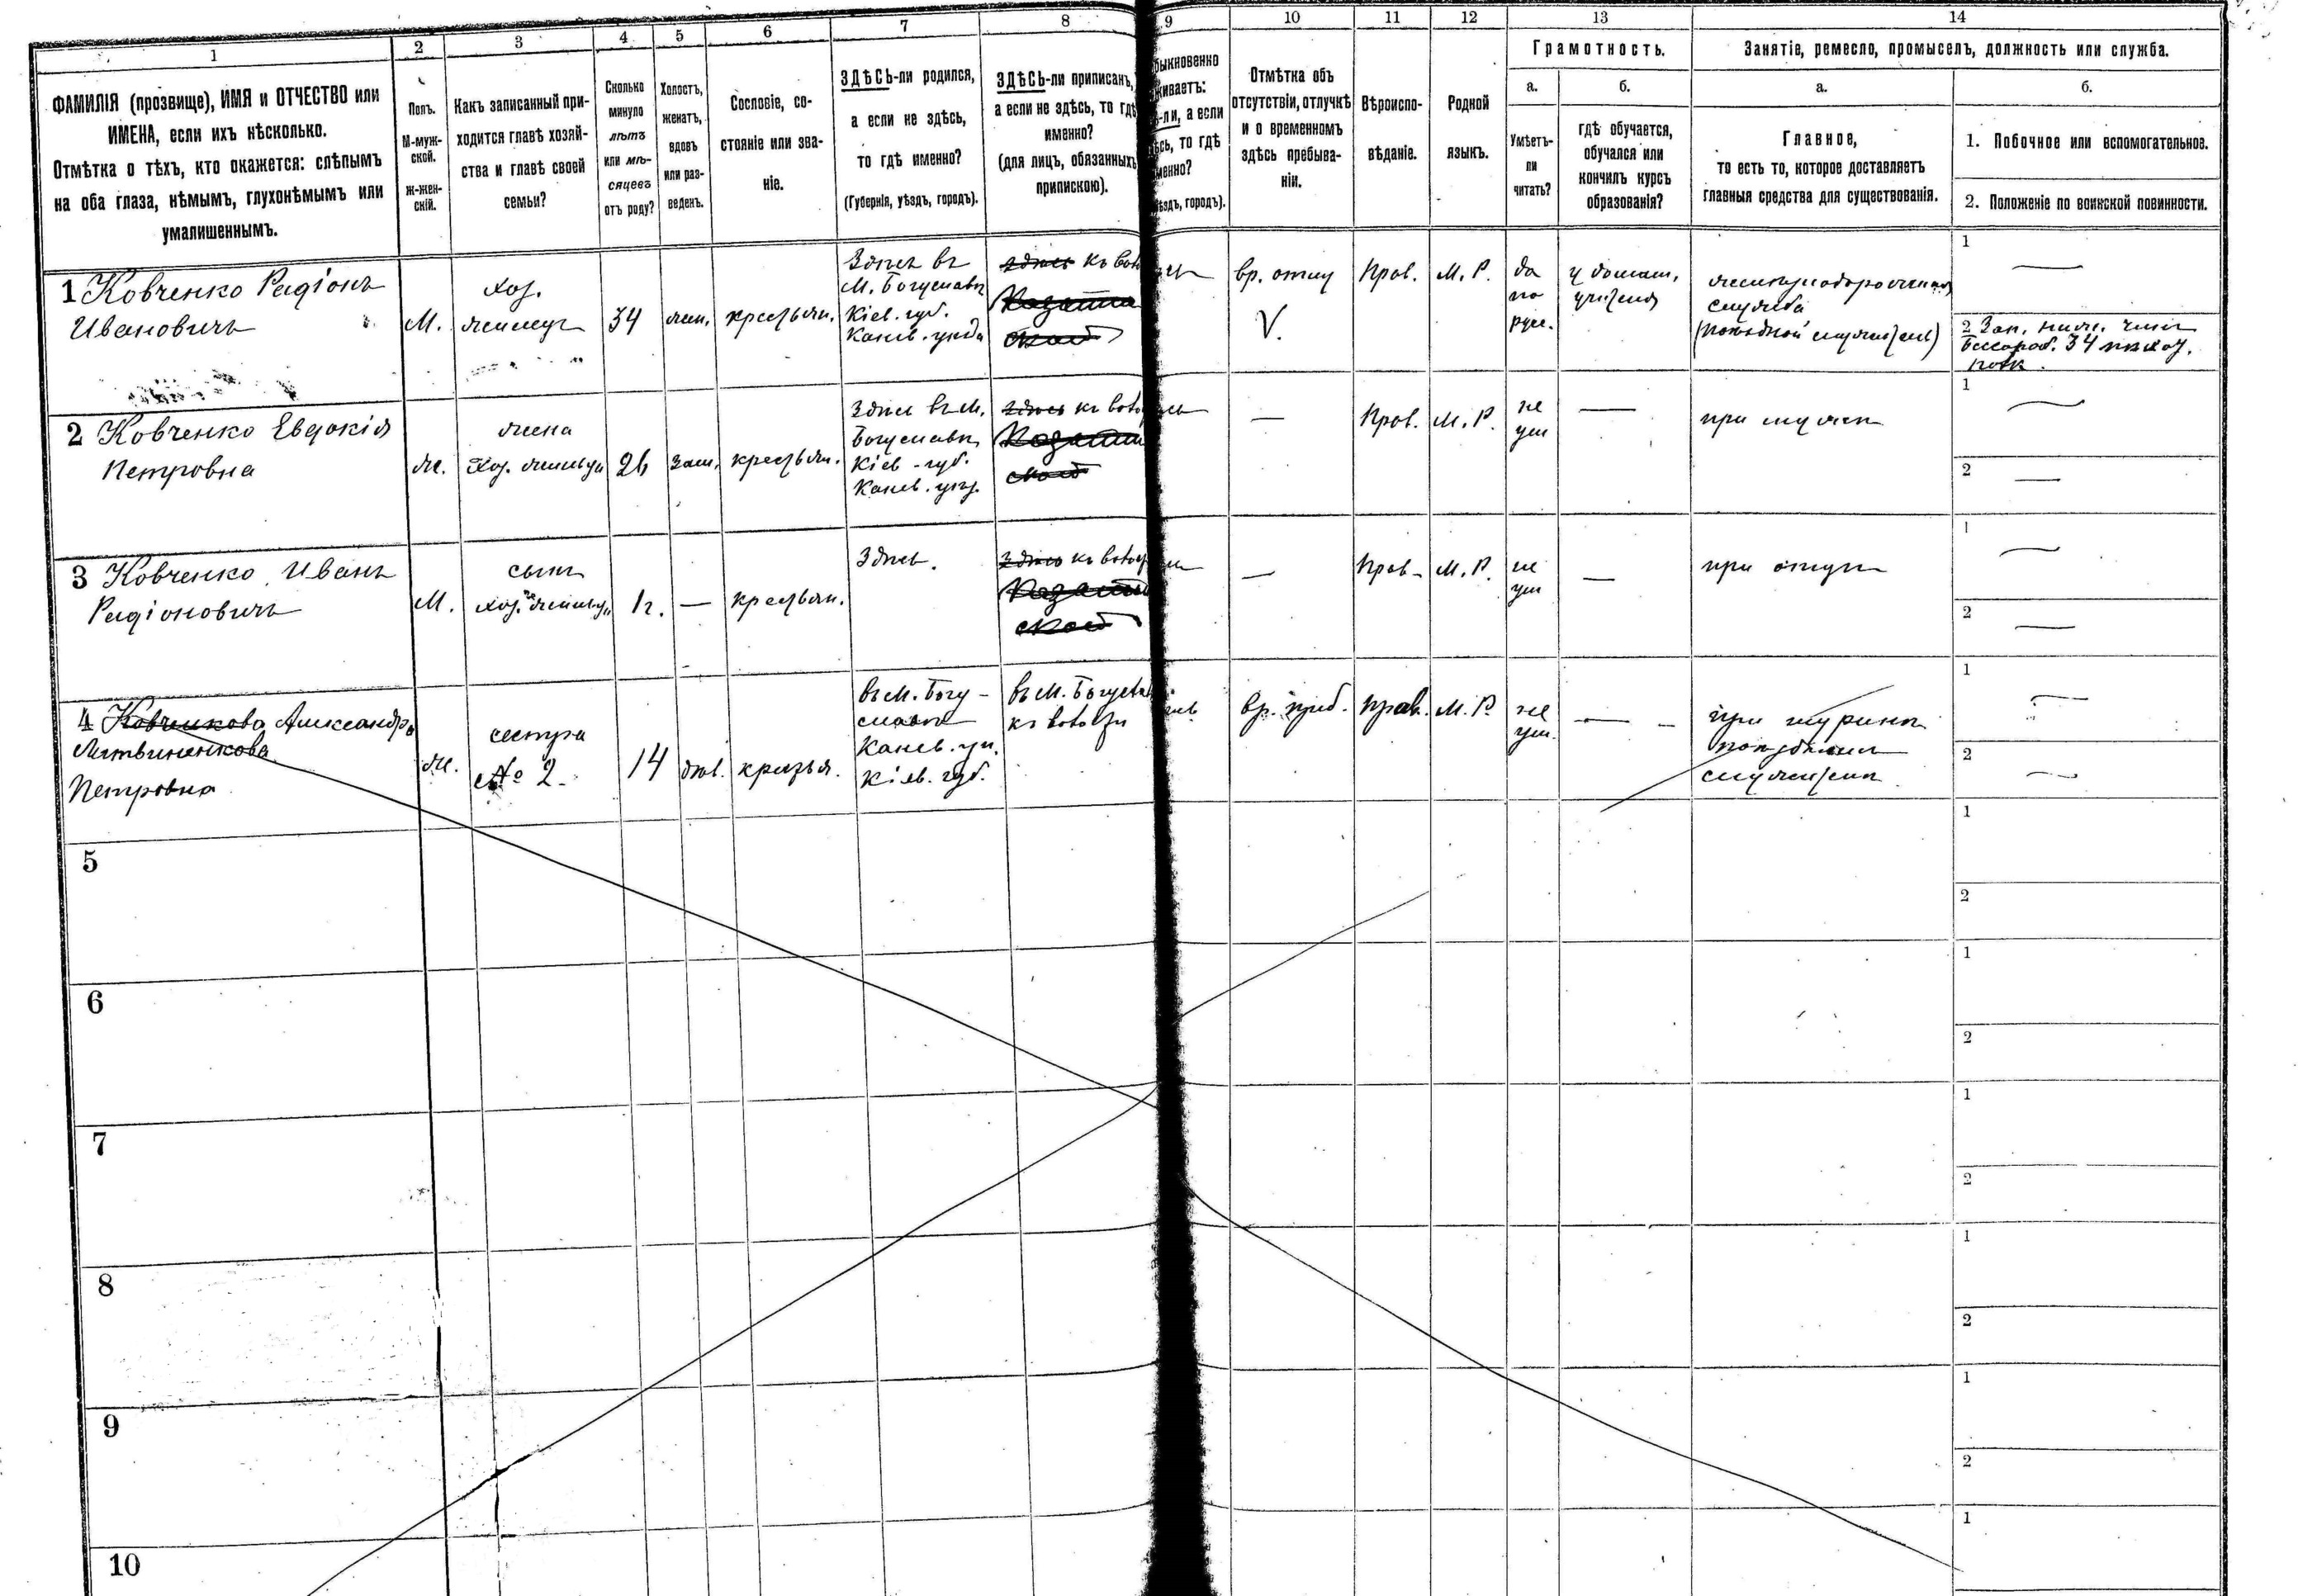 1
2
3
4
5
6
7
8
9
10
11
12
13
14
ФАМИЛІЯ (прозвище), ИМЯ и ОТЧЕСТВО или
ИМЕНА, если ихъ нѣсколько.
Отмѣтка о тѣхъ, кто окажется: слѣпымъ
на оба глаза, нѣмымъ, глухонѣмымъ или
умалишеннымъ.
Полъ.
М-муж-
ской.
ж-жен-
скій.
Какъ записанный при-
ходится главѣ хозяй-
ства и главѣ своей
семьи?
Сколько
минуло
лѣтъ
или мѣ-
сяцевъ
отъ роду?
Холостъ,
женатъ,
вдовъ
или раз-
веденъ.
Сословіе, со-
стояніе или зва-
ніе.
ЗДѢСЬ-ли родился,
а если не здѣсь,
то гдѣ именно?
(Губернія, уѣздъ, городъ).
ЗДѢСЬ-ли приписанъ,
а если не здѣсь, то гдѣ
именно?
(для лицъ, обязанныхъ
припискою).
быкновенно
живаетъ:
ѣ-ли, а если
ѣсь, то гдѣ
менно?
ѣздъ, городъ).
Отмѣтка объ
отсутствіи, отлучкѣ
и о временномъ
здѣсь пребыва-
ніи.
Вѣроиспо-
вѣданіе.
Родной
языкъ.
Грамотность.
а.
Умѣетъ-
ли
читать?
б.
гдѣ обучается,
обучался или
кончилъ курсъ
образованія?
Занятіе, ремесло, промыселъ, должность или служба.
а.
Главное,
то есть то, которое доставляетъ
главныя средства для существованія.
б.
1. Побочное или вспомогательное.
2. Положеніе по воинской повинности.
1 Ковченко Радіонъ
Ивановичъ
М.
хоз.
34
жен.
крестьян.
Здѣсь въ
М. Богуславѣ
Кіев. губ.
Канев. уѣзда
здѣсь къ вол
вр. отлу
V.
Прав.
М. Р.
да
по
рус.
у домаш.
учителя
желѣзнодорожная
служба
1
2 Зап. нижн. чинъ
34
2 Ковченко Евдокія
Петровна
ж.
жена
хоз.
26
зам.
крестьян.
Здѣсь въ М.
Богуславѣ
Кіев. губ.
Канев. уѣз.
здѣсь къ воло
—
Прав.
М. Р.
не
ум
—
при мужѣ
1
2
3 Ковченко Иванъ
Радіоновичъ
М.
сынъ
хоз.
1 г.
—
крестьян.
Здѣсь.
здѣсь къ волос
—
Прав.
М. Р.
не
ум
—
при отцѣ
1
2
4 Ковченкова Александра
Литвиненкова
Петровна
ж.
сестра
№ 2.
14
дѣв.
крестья.
въ М. Богу-
славѣ
Канев. уѣ.
Кіев. губ.
въ М. Богуслав
къ волости
вр. приб.
прав.
М. Р.
не
ум.
—
при шуринѣ
1
2
5
1
2
6
1
2
7
1
2
8
1
2
9
1
2
10
1